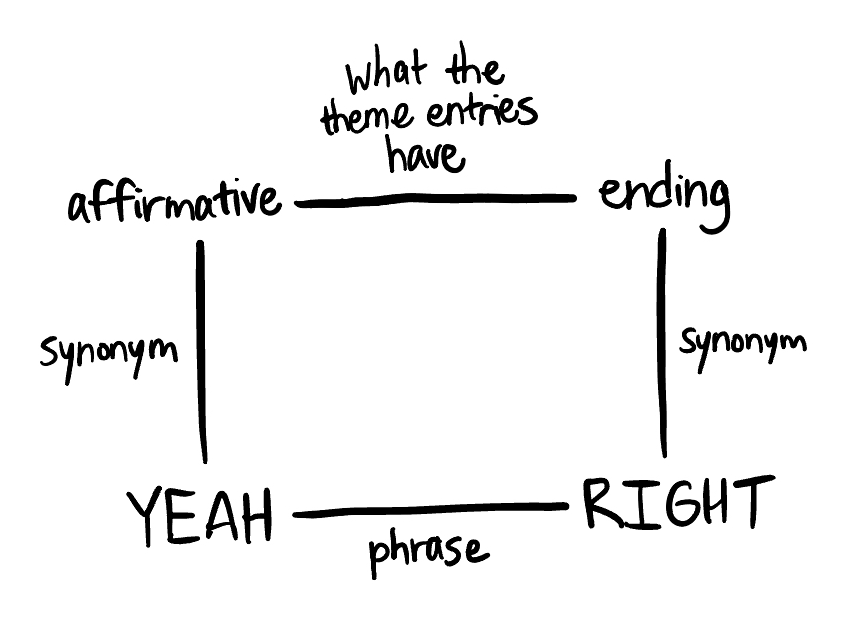 what the
theme entries
have
affirmative
ending
synonym
synonym
YEAH
RIGHT
phrase